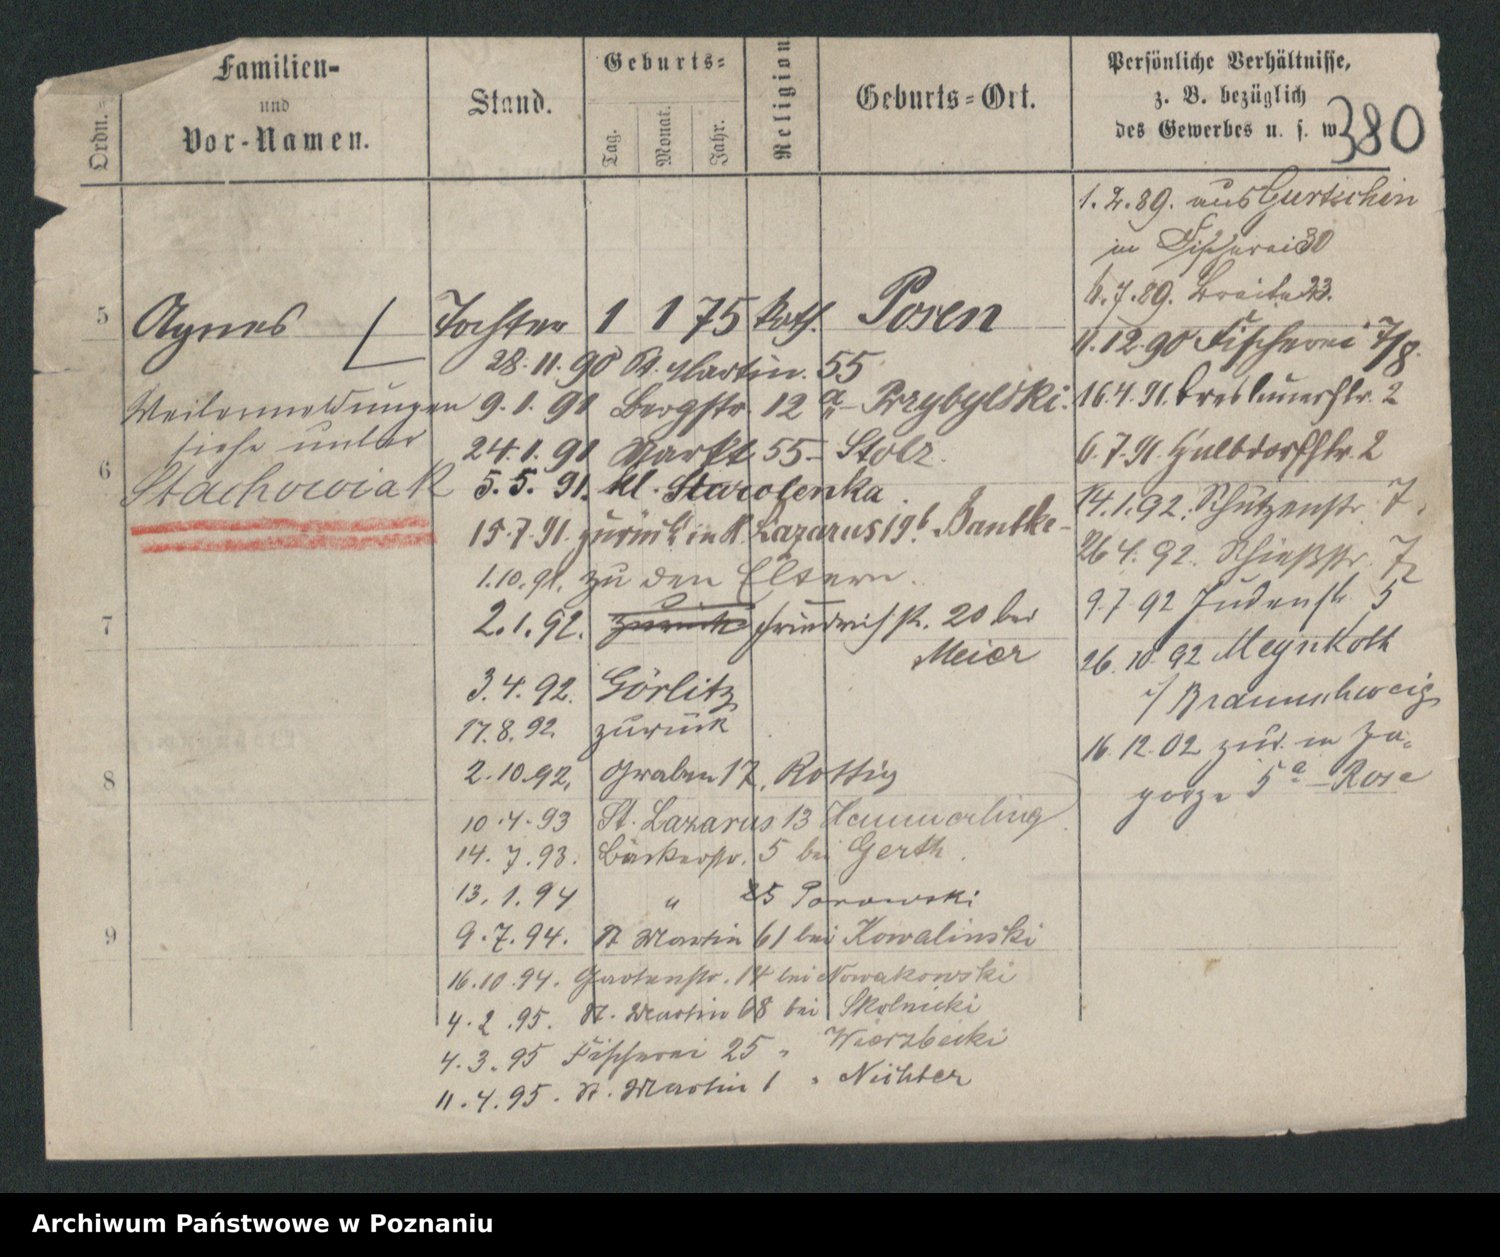 Ordn.
Familien-
und
Vor-Namen.
Stand.
Geburts-
Tag.
Monat.
Jahr.
Religion
Geburts-Ort.
Persönliche Verhältnisse,
z. B. bezüglich
des Gewerbes u. s. w.
380
1.2.89. aus Gurtschin
in Fischerei 30
4.7.89. Breite 23.
5 Agnes Tochter 1 1 75 kath. Posen
11.12.90 Fischerei 7/8.
28.11.90 St. Martin. 55
Weitermeldungen 9.1.91 Bergstr. 12 a - Przybylski.
16.4.91. Breslauerstr. 2
siehe unter 24.1.91 Markt 55 - Stolz.
6.7.91. Halbdorfstr. 2
6 Stachowiak 5.5.91. kl. Starolenka.
14.1.92. Schützenstr. 7.
15.7.91. zurück in St. Lazarus 19b. Bantke-
26.4.92. Schießstr. 7
1.10.91. zu den Eltern.
9.7.92 Judenstr. 5
7 2.1.92. zurück Friedrichstr. 20 bei
Meier
26.10.92 Meynkoth
3.4.92. Görlitz
i/ Braunschweig
17.8.92. zurück
16.12.02 zur. in Za-
8 2.10.92. Graben 17, Rottig
gorze 5a - Rose
10.4.93 St. Lazarus 13 Hammerling
14.7.93. Bäckerstr. 5 bei Gerth.
13.1.94 " 25 Porowski
9 9.7.94. St Martin 61 bei Kowalinski
16.10.94. Gartenstr. 14 bei Nowakowski
4.2.95. St. Martin 68 bei Skolnicki
4.3.95 Fischerei 25 " Wierzbicki
11.4.95. St. Martin 1 " Nichter
Archiwum Państwowe w Poznaniu